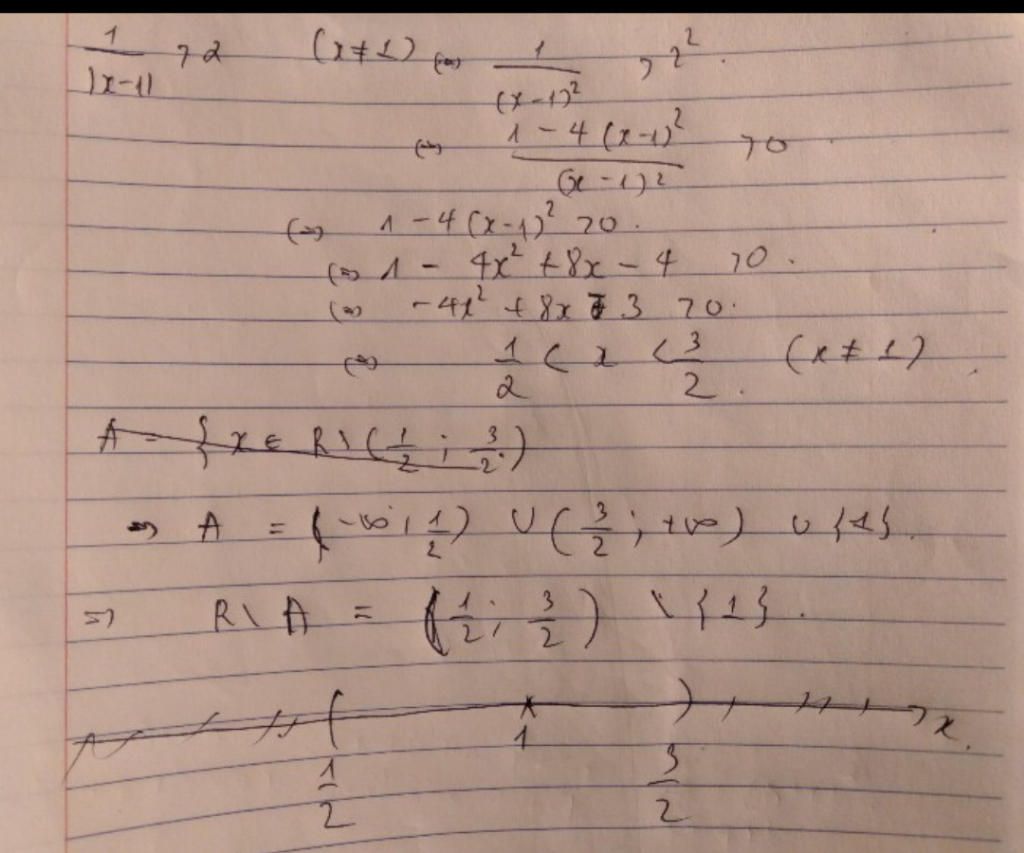 1/|x-1| > 2 (x ≠ 1) (⇒) 1/(x-1)² > 2².
(⇒) (1 - 4(x-1)²)/(x-1)² > 0.
(⇒) 1 - 4(x-1)² > 0.
(⇒) 1 - 4x² + 8x - 4 > 0.
(⇒) -4x² + 8x - 3 > 0.
(⇒) 1/2 < x < 3/2. (x ≠ 1),
A = { x ∈ R \ (1/2 ; 3/2.)
⇒ A = (-∞ ; 1/2) ∪ (3/2 ; +∞) ∪ {1}.
⇒ R \ A = (1/2 ; 3/2) \ {1}.
( 1 ) x.
1/2 3/2